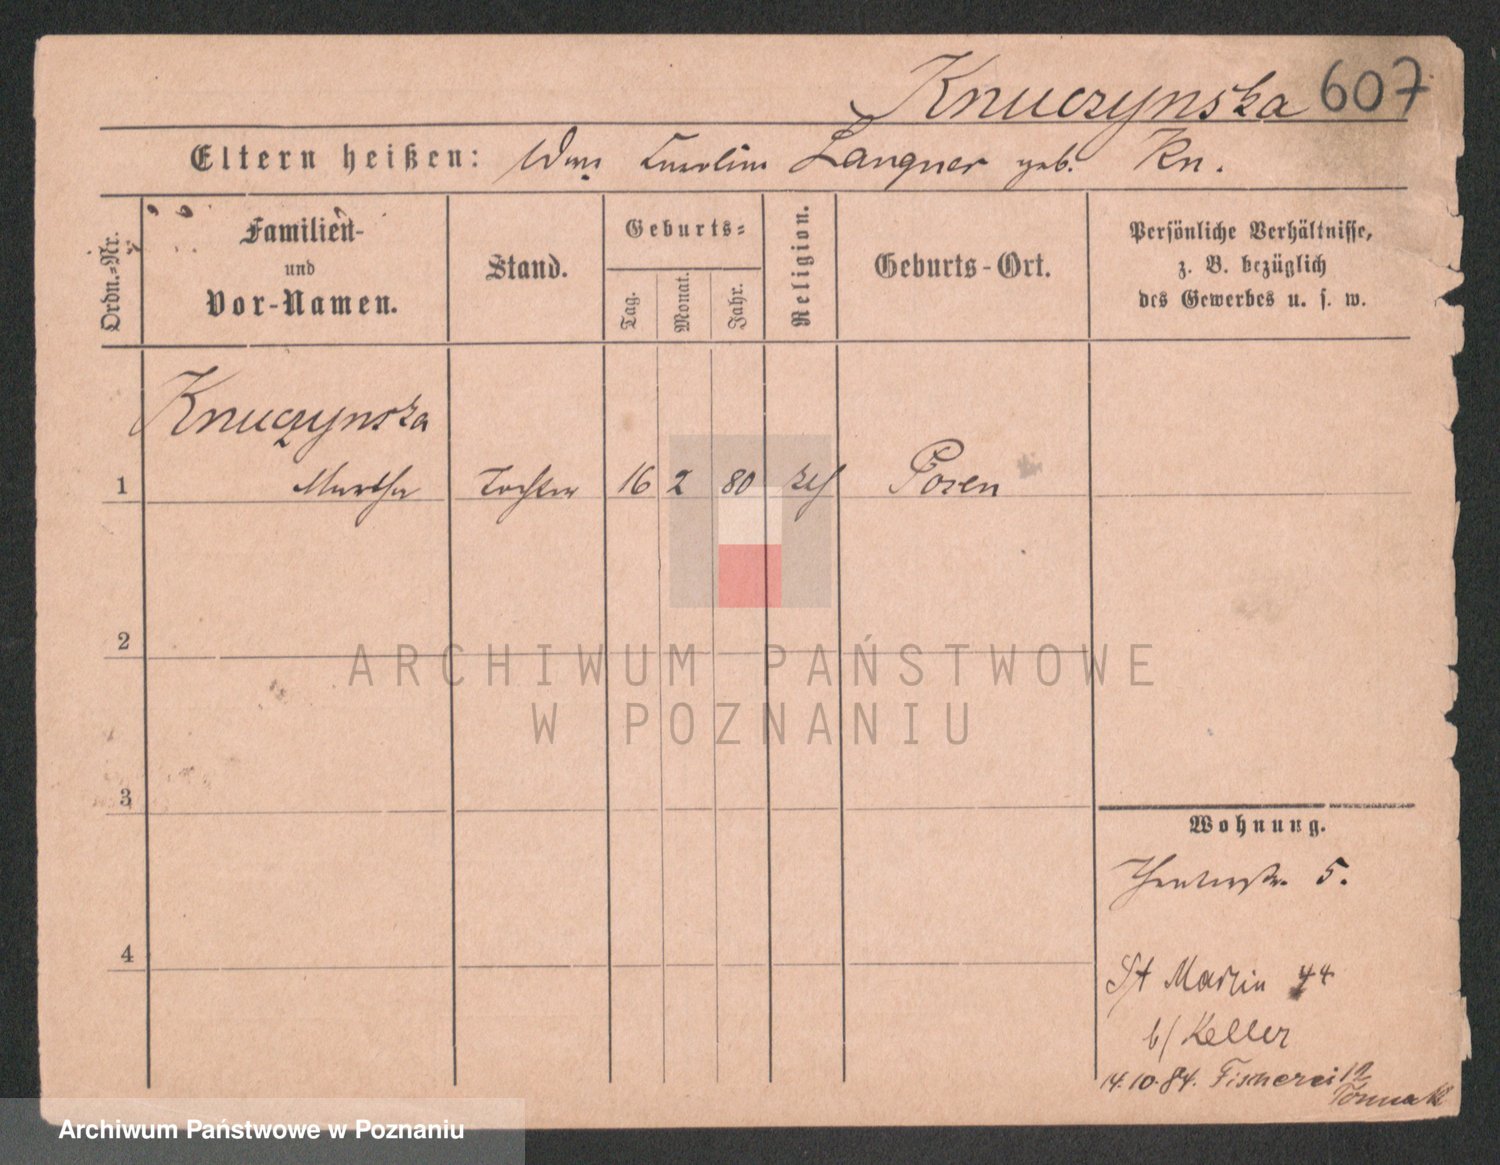 Knuczynska 607
Eltern heißen: Wwe. Caroline Langner geb. Kn.
Ordn.-Nr.
Familien-
und
Vor-Namen.
Stand.
Geburts-
Tag.
Monat.
Jahr.
Religion.
Geburts-Ort.
Persönliche Verhältnisse,
z. B. bezüglich
des Gewerbes u. s. w.
Knuczynska
1 Martha Tochter 16 2 80 Posen
2
3
4
Wohnung.
5.
St Martin 44
b/ Keller
14.10.84. Fischerei 12
ARCHIWUM PAŃSTWOWE
W POZNANIU
Archiwum Państwowe w Poznaniu